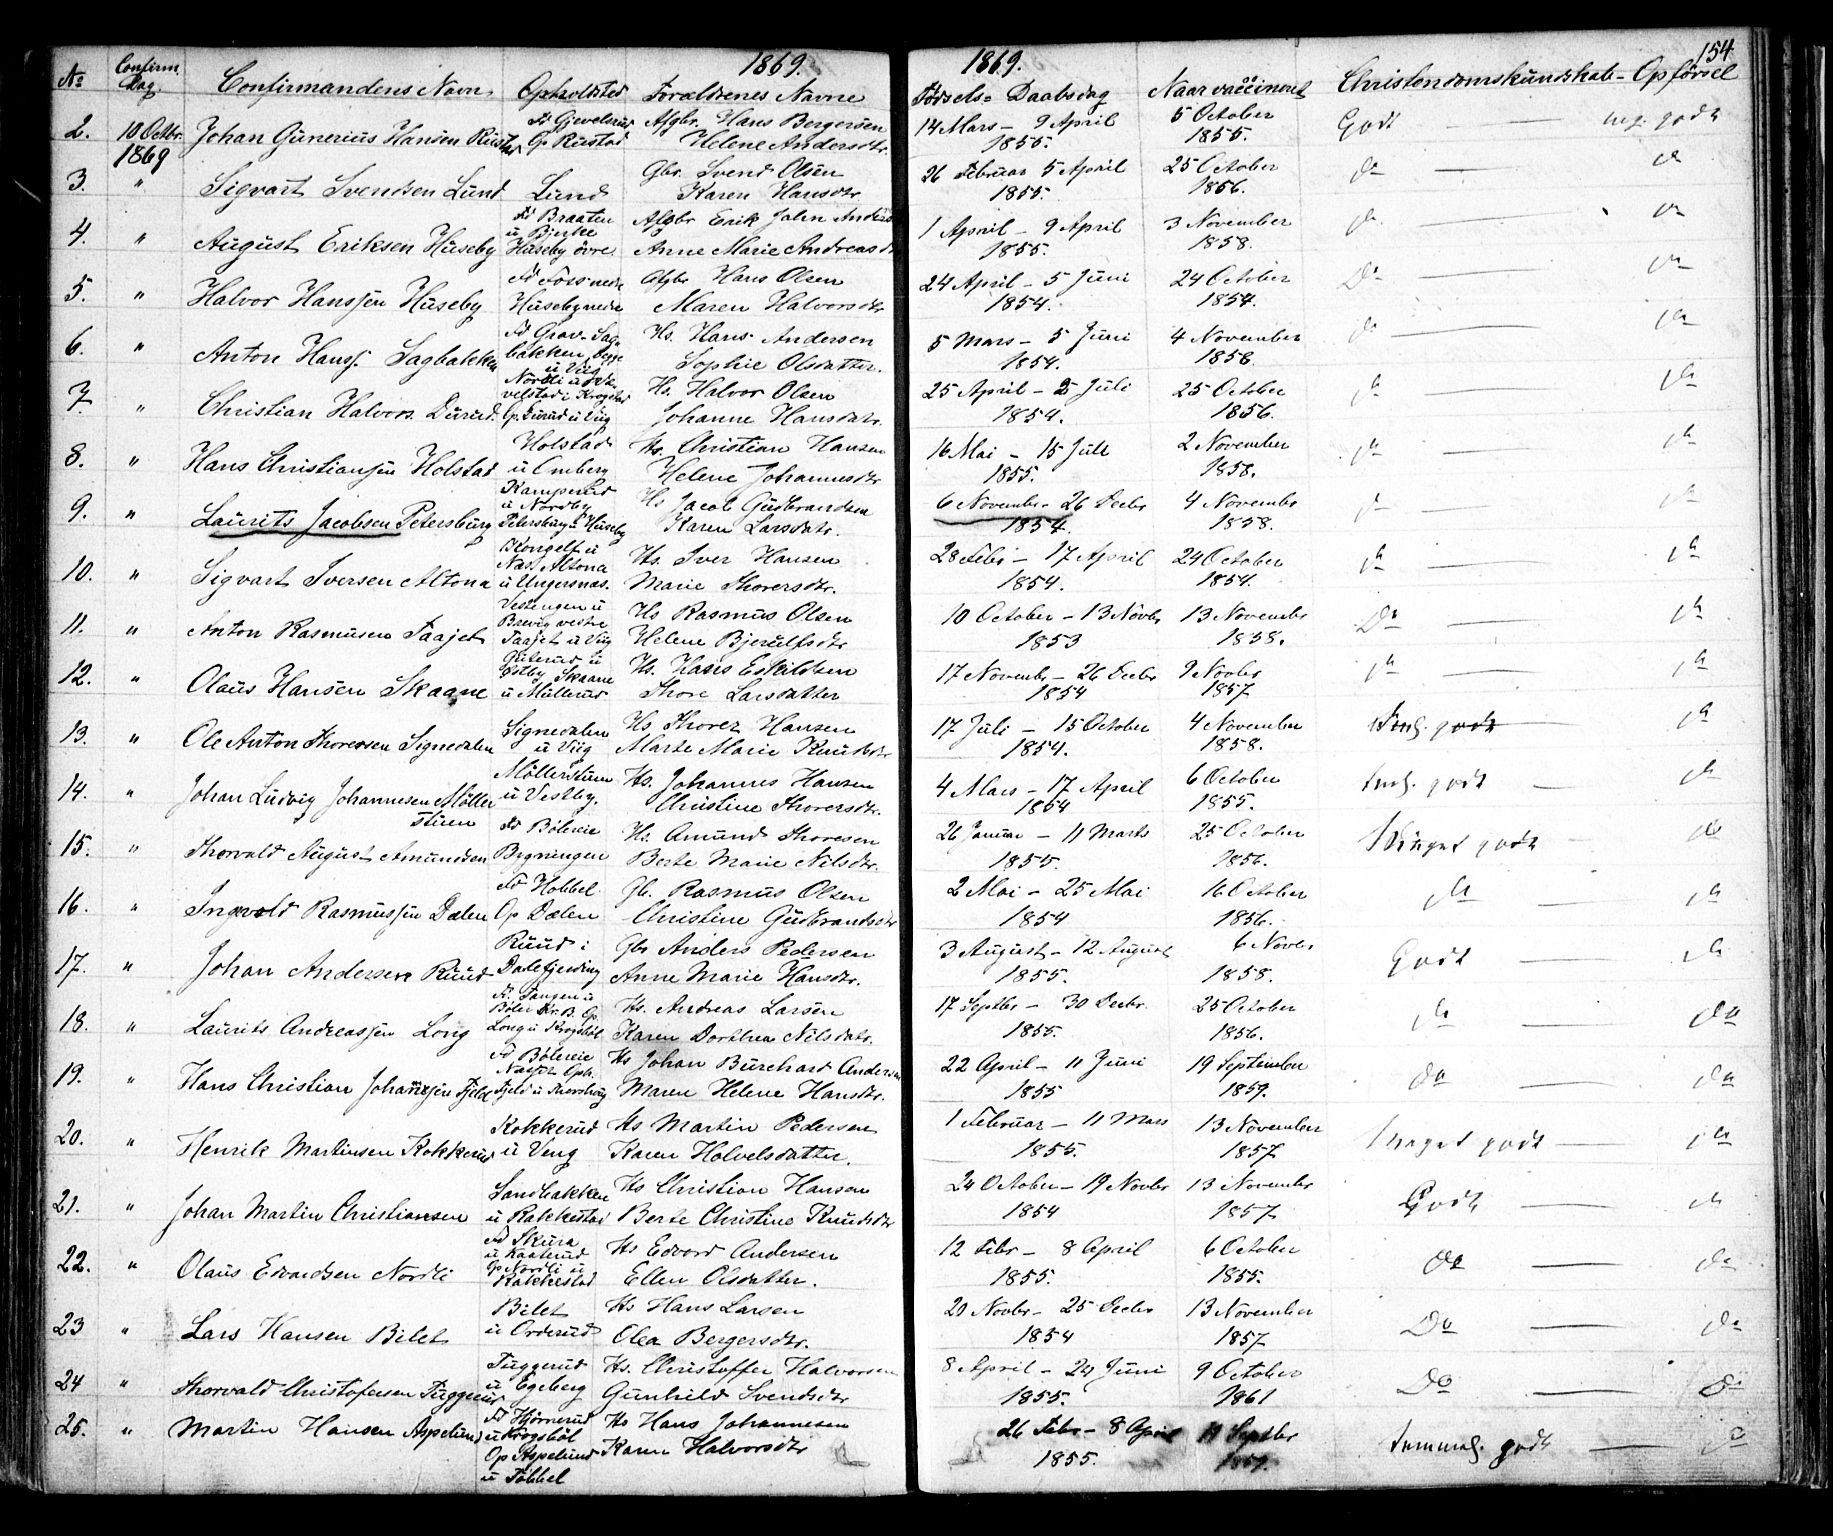 1869. 1869. 154
No Confirm. Dag. Confirmandens Navn Opholdsted Forældrenes Navne Fødsels- Daabsdag Naar vaccineret Christendomskundskab - Opførsel
2. 10 Octbr. 1869 Johan Gunerius Hansen Rustad Fd Gjevelsrud Op Rustad Afgbr. Hans Bergersen Helene Andersdtr. 14 Mars - 9 April 1855. 5 October 1855. Godt — meg. godt
3. " Sigvart Svendsen Lund Lund Gbr. Svend Olsen Karen Hansdtr 26 Februar 5 April 1855. 25 October 1856. do — do
4. " August Eriksen Huseby Fd Braaten u Bjerke Huseby övre Afgbr Erik John Anders Anne Marie Andreasd 1 April - 9 April 1855. 3 November 1858. do — do
5. " Halvor Hansjen Huseby Fd Foss nedre Huseby nedre Afgbr Hans Olsen Maren Halvorsdtr 24 April - 5 Juni 1854. 24 October 1854. Do — do
6. " Anton Hansj. Sagbakken Fd Grav- Sagbakken, begge u Viig Hs. Hans Andersen Sophie Olsdatter. 5 Mars - 5 Juni 1854. 4 November 1858 do — do
7. " Christian Halvors. Durud. Nordli u velstad i Krogstad Op. Durud u Viig Hs. Halvor Olsen Johanne Hansdatr. 25 April - 2 Juli 1854. 25 October 1856. do — do
8. " Hans Christiansjen Holstad Holstad u Omberg Hs. Christian Hansen Helene Johannesdtr 16 Mai - 15 Juli 1855. 2 November 1858. do — do
9. " Laurits Jacobsen Petersburg Kamperud u Nordby Petersburg u Huseby Hs Jacob Gudbrandsen Karen Larsdatr. 6 November - 26 Decbr 1854. 4 Novembr 1858. do — do
10. " Sigvart Iversen Altona Kongelf u Næs Altona u Ungersnæs. Hs. Iver Hansen Marie Thorersdtr. 28 Febr - 17 April 1854. 24 October 1854. do — do
11. " Anton Rasmusen Taajet Vestengen u Brevig vestre Taajet u Viig Hs Rasmus Olsen Helene Bjerulfsdtr 10 October - 13 Novbr 1853 13 Novembr 1858. Do — do
12. " Olaus Hansen Skaane u Estby Skaane u Mullerud Hs. Hans Eskildsen Thore Larsdatter 17 Novembr - 26 Decbr 1854 9 Novbr 1857 do — do
13. " Ole Anton Thoresen Signedalen Signedalen u Viig Hs Thorer Hansen Marte Marie Knudsdtr 17 Juli - 15 October 1854. 4 November 1858. godt — do
14. " Johan Ludvig Johannesen Möllerstuen Möllerstuen u Vestby. Hs. Johannes Hansen Christine Thorersdtr. 4 Mars - 17 April 1854 6 October 1855. godt — do
15. " Thorvald August Amundsen Fd Böleeie Bygningen Hs. Amund Thoresen Berte Marie Nilsdtr. 26 Januar - 11 Marts 1855. 25 October 1856. godt — do
16. " Ingvald Rasmusjen Dalen Fd Hobbel Op Dalen Gb. Rasmus Olsen Christine Gudbrandsdtr 2 Mai - 25 Mai 1854 16 October 1856. do — do
17. " Johan Andersen Ruud Ruud i Dalefjerding Gbr Anders Pedersen Anne Marie Hansdtr. 3 August - 12 August 1855. 6 Novbr 1858. Godt — do
18. " Laurits Andreasjen Long Fd. Tangen u Böler Kr. B. Op. Long u Krogsböl Hs. Andreas Larsen Karen Dorthea Nilsdatr. 17 Septbr - 30 Decbr. 1855. 25 October 1856. do — do
19. " Hans Christian Johansjen Fjeld Fd Böleeie Oph. Fjeld u Thorshaug Hs Johan Burchard Andersen Maren Helene Hansdtr. 22 April - 11 Juni 1855 19 September 1859. do — do
20. " Henrik Martinsen Kokkerud Kokkerud u Veng Hs Martin Pedersen Karen Halvelsdatter. 1 Februar - 11 Mars 1855. 13 November 1857 meget godt — do
21. " Johan Martin Christiansen Sandbakken u Rakkestad Hs Christian Hansen Berte Christine Knudsdtr 24 October - 19 Novbr 1854 13 Novembr 1857 Godt — do
22. " Olaus Edvardsen Nordli Fd Skura u Kaaterud Op Nordli u Rakkestad Hs Edvard Andersen Ellen Olsdatter. 12 Febr - 8 April 1855. 6 October 1855. Do — do
23 " Lars Hansen Bilet Bilet u Orderud Hs Hans Larsen Olea Bergersdtr. 20 Novbr - 25 Decbr 1854 13 November 1857 Do — do
24 " Thorvald Christofersen Tuggerud Tuggerud u Egeberg Hs. Christoffer Halvorsen Gunhild Svendsdtr 8 April - 24 Juni 1855. 9 October 1861 Do — Do
25. " Martin Hansen Aspelund Fd Hjörnerud u Krogsböl Op Aspelund u Többel Hs Hans Johannesen Karen Halvorsdtr 26 Febr - 8 April 1855. 11 Septbr godt — do